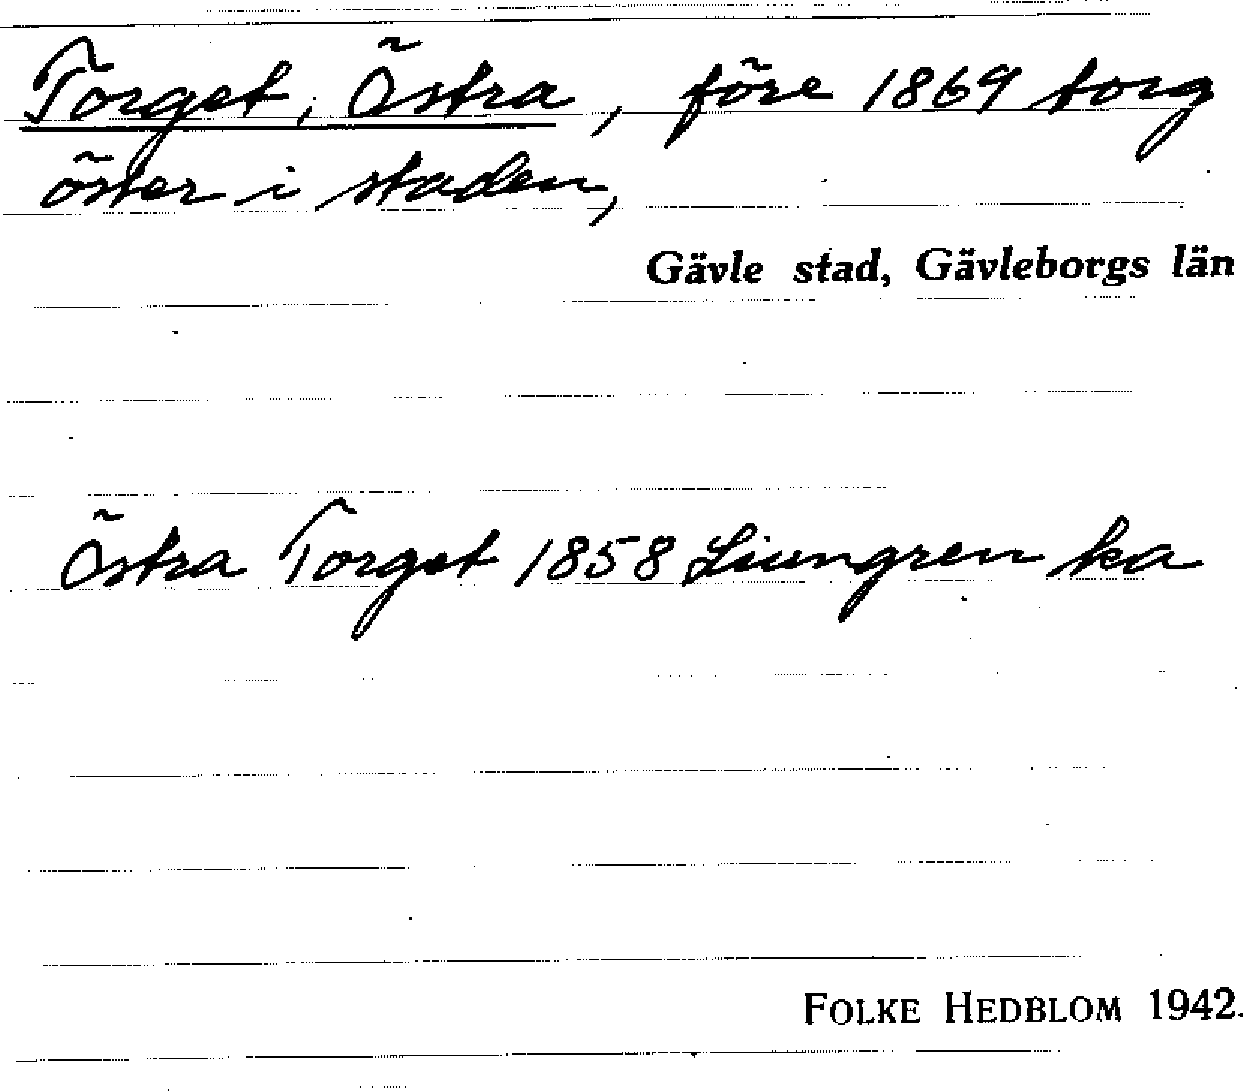 Torget, Östra, före 1869 torg
öster i staden,
Gävle stad, Gävleborgs län
Östra Torget 1858 Liungren ka
FOLKE HEDBLOM 1942.